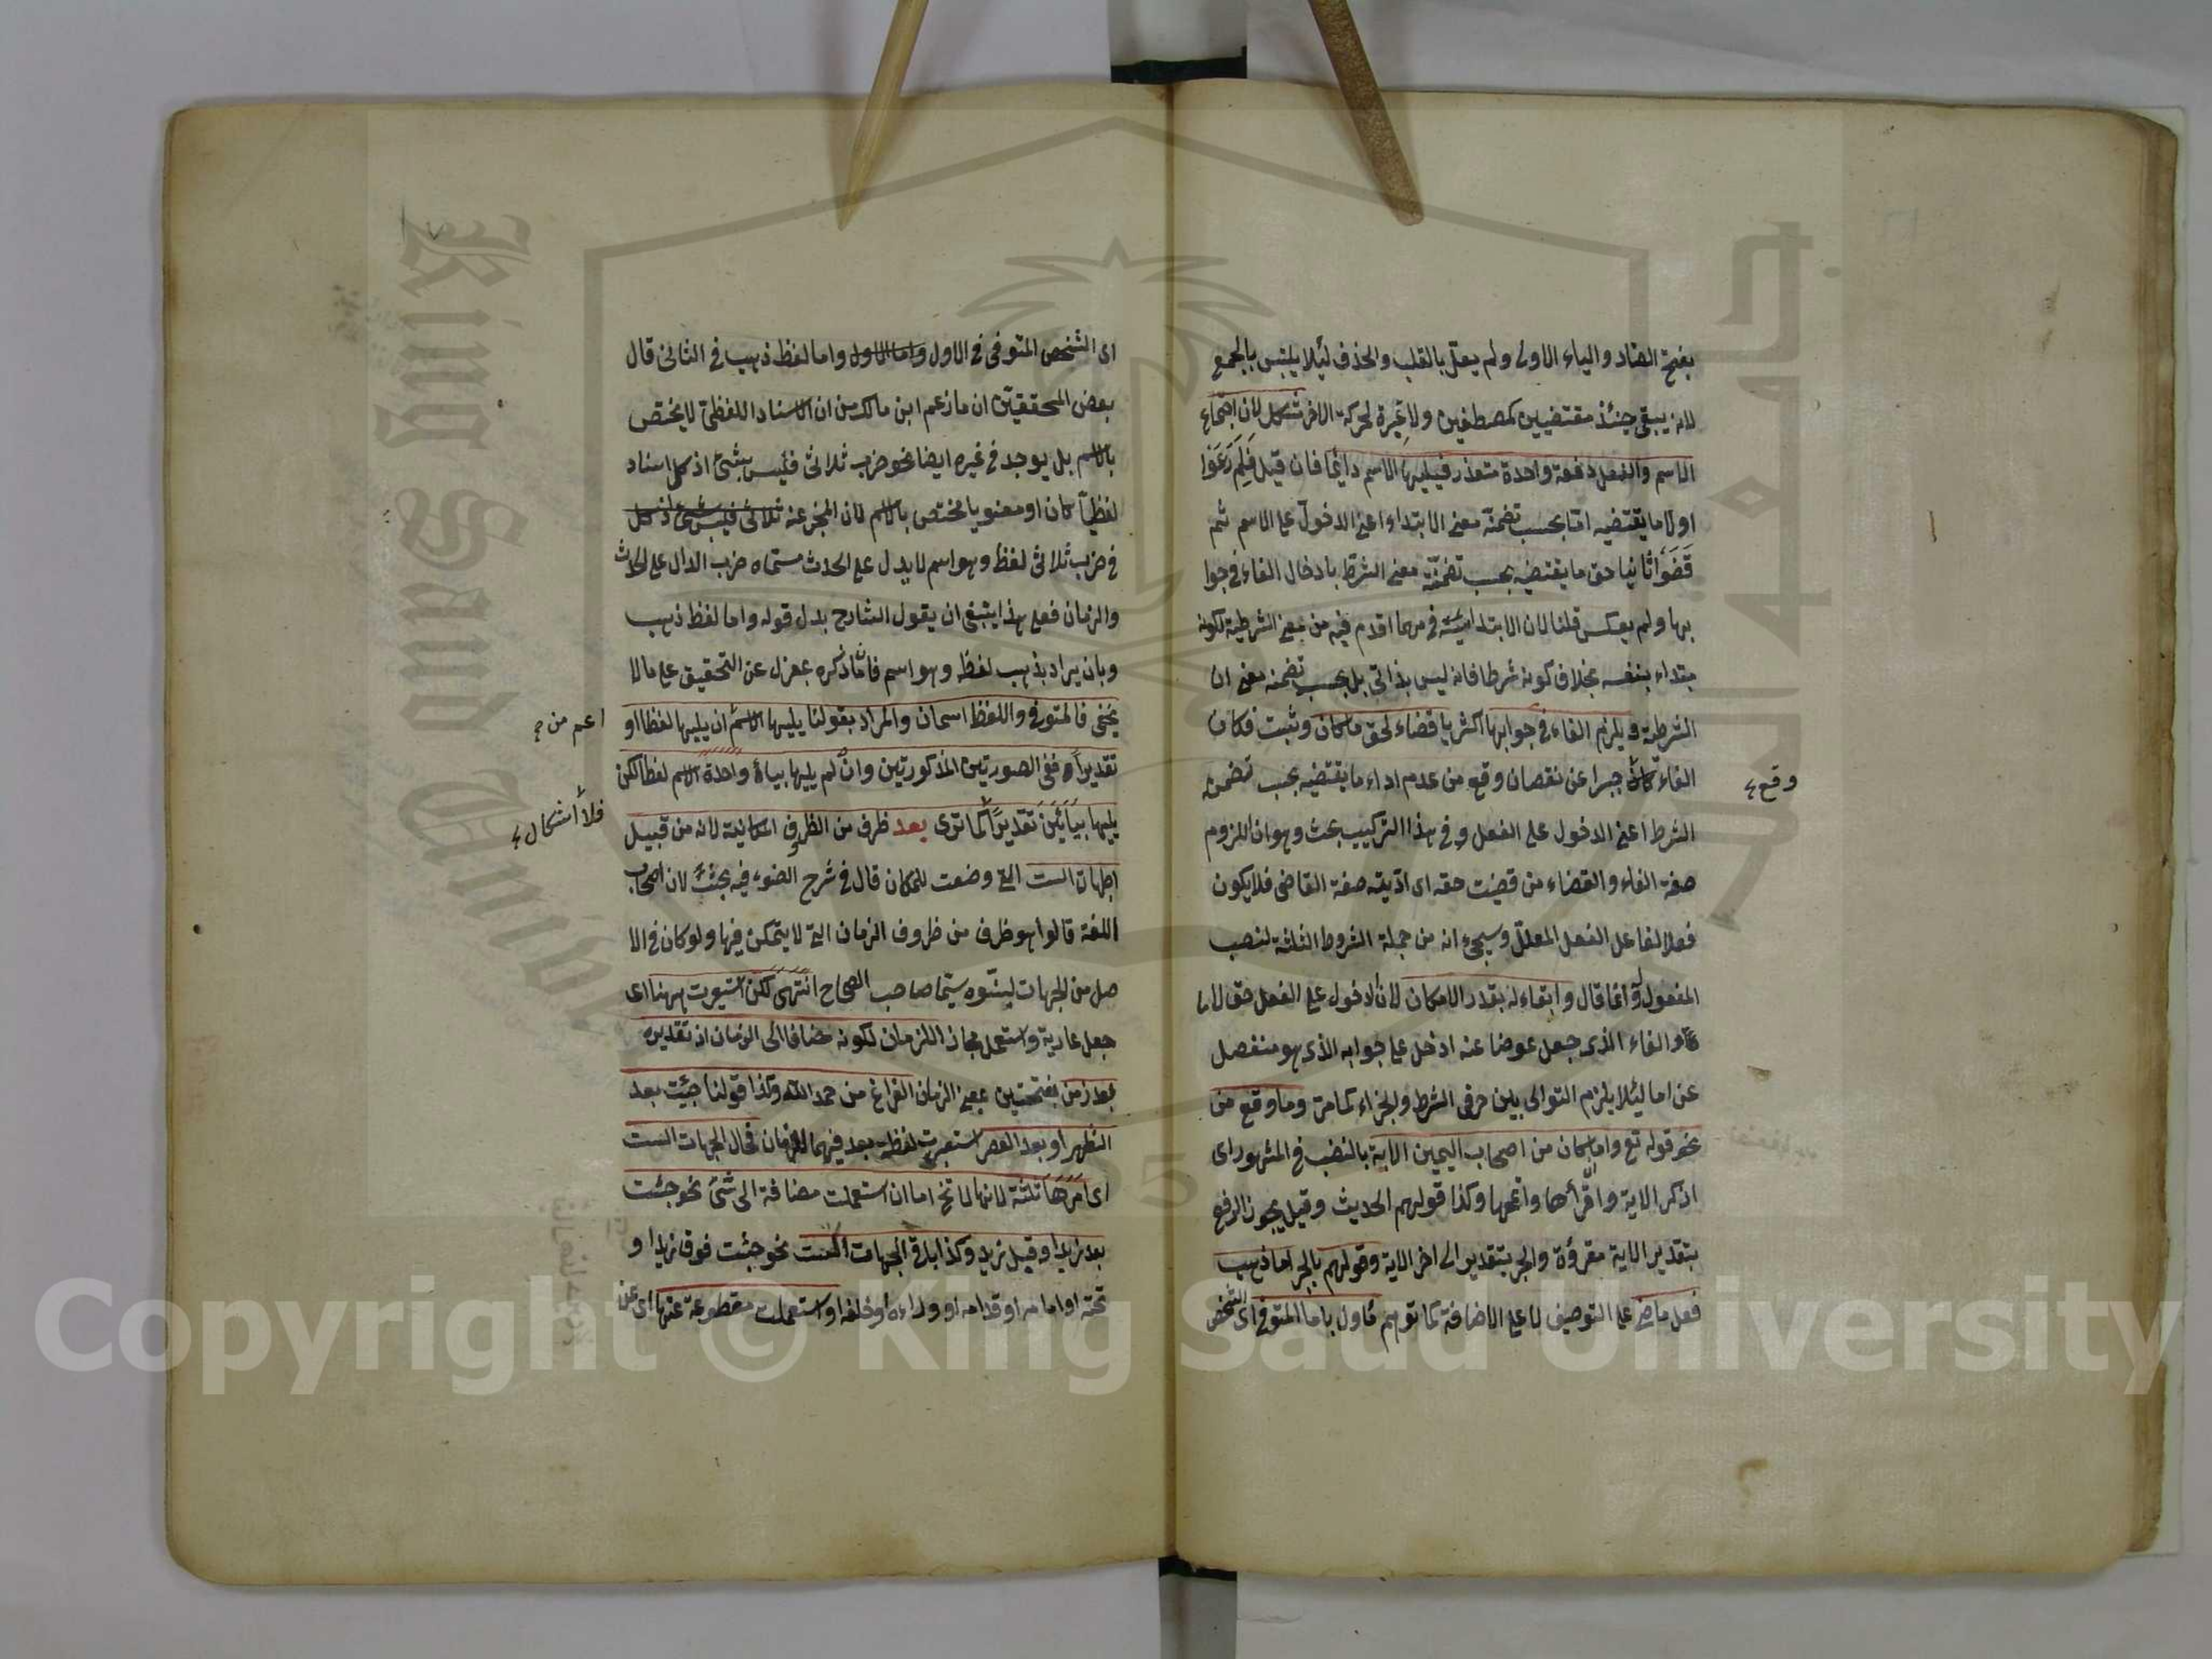 بفتح الضاد والياء الاولى ولم يعل بالقلب والحذف لئلا يلتبس بالجمع
لانه يبقى حينئذ مقتضيين كمصطفين ولا غيرة لحركة الاخر لان اجتماع
الاسم والفعل دفعة واحدة متعذر فيليها الاسم دائما فان قيل فلم رعوا
اولا ما يقتضيه اما بحسب تضمنه معنى الابتداء اعنى الدخول على الاسم ثم
قضوا ثانيا حق ما يقتضيه بحسب تضمنه معنى الشرط بادخال الفاء فى جوا
بها ولم يعكس قلنا لان الابتدائية فى مهما اقدم فيه من معنى الشرطية لكونه
مبتداء بنفسه بخلاف كونه شرطا فانه ليس بذاتى بل بحسب تضمنه معنى ان
الشرطية ويلزم الفاء فى جوابها اكثريا قضاء لحق ما كان وثبت فكان
الفاء كان جبرا عن نقصان وقع من عدم اداء ما يقتضيه بحسب تضمنه
وقع
الشرط اعنى الدخول على الفعل وفى هذا التركيب بحث وهو ان اللزوم
صفة الفاء والقضاء من قضيت حقه اى اديته صفة القاضى فلا يكون
فعلا لفاعل الفعل المعلل وسيجئ انه من جملة الشروط الثلثة لنصب
المفعول له وانما قال وابقاء له بقدر الامكان لان الدخول على الفعل حق لاما
والفاء الذى جعل عوضا عنه ادخل على جوابه الذى هو منفصل
عن اما لئلا يلزم التوالى بين حرفى الشرط والجزاء كما مر وما وقع من
نحو قوله تع واما ان كان من اصحاب اليمين الاية بالنصب فى المشهور اى
اذكر الاية واقرأها واتمها وكذا قولهم الحديث وقيل يجوز الرفع
بتقدير الاية مقروة والجر بتقدير الى اخر الاية وقولهم بالجر اما ذهب
فعل ماض على التوصيف لا على الاضافة كما توهم مأول باما المتوفى اى الشخص
اى الشخص المتوفى فى الاول واما الاول واما لفظ ذهب فى الثانى قال
بعض المحققين ان ما زعم ابن مالك من ان الاسناد اللفظى لا يختص
بالاسم بل يوجد فى غيره ايضا نحو ضرب ثلاثى فليس بشئ اذ كل اسناد
لفظيا كان او معنويا مختص بالاسم لان المخبر عنه ثلاثى فليس بشئ اذ كل
فى ضرب ثلاثى لفظ وهو اسم لا يدل على الحدث مسماه ضرب الدال على الحدث
والزمان فعلى هذا ينبغى ان يقول الشارح بدل قوله واما لفظ ذهب
وبان يراد بذهب لفظه وهو اسم فان ما ذكره بمعزل عن التحقيق على ما لا
يخفى فالمتوفى واللفظ اسمان والمراد بقولنا يليها الاسم ان يليها لفظا او
اعم من
تقديرا ففى الصورتين المذكورتين وان لم يليها بياء واحدة الاسم لفظا لكن
يليها بيائين تقديرا كما ترى بعد ظرف من الظروف المكانية لانه من قبيل
فلا اشكال
الجهات الست التى وضعت للمكان قال فى شرح الضوء فيه بحث لان اصحاب
اللغة قالوا هو ظرف من ظروف الزمان التى لا يتمكن فيها ولو كان فى الا
صل من الجهات لبينوه سيما صاحب الصحاح انتهى لكن استعيرت ههنا اى
جعل عارية واستعمل مجازا للزمان لكونه مضافا الى الزمان اذ تقديره
بعد زمن بفتحتين بمعنى الزمان الفراغ من حمد الله وكذا قولنا جئت بعد
الظهر او بعد العصر استعيرت لفظة بعد فيهما للزمان فحال الجهات الست
اى امرها ثلثة لانها لا تخ اما ان استعملت مضافة الى شئ نحو جئت
بعد زيد او قبل زيد وكذا باقى الجهات الست نحو جئت فوق زيد او
تحته او امامه او قدامه او وراءه او خلفه او استعملت مقطوعة عنها اى عن
Copyright © King Saud University